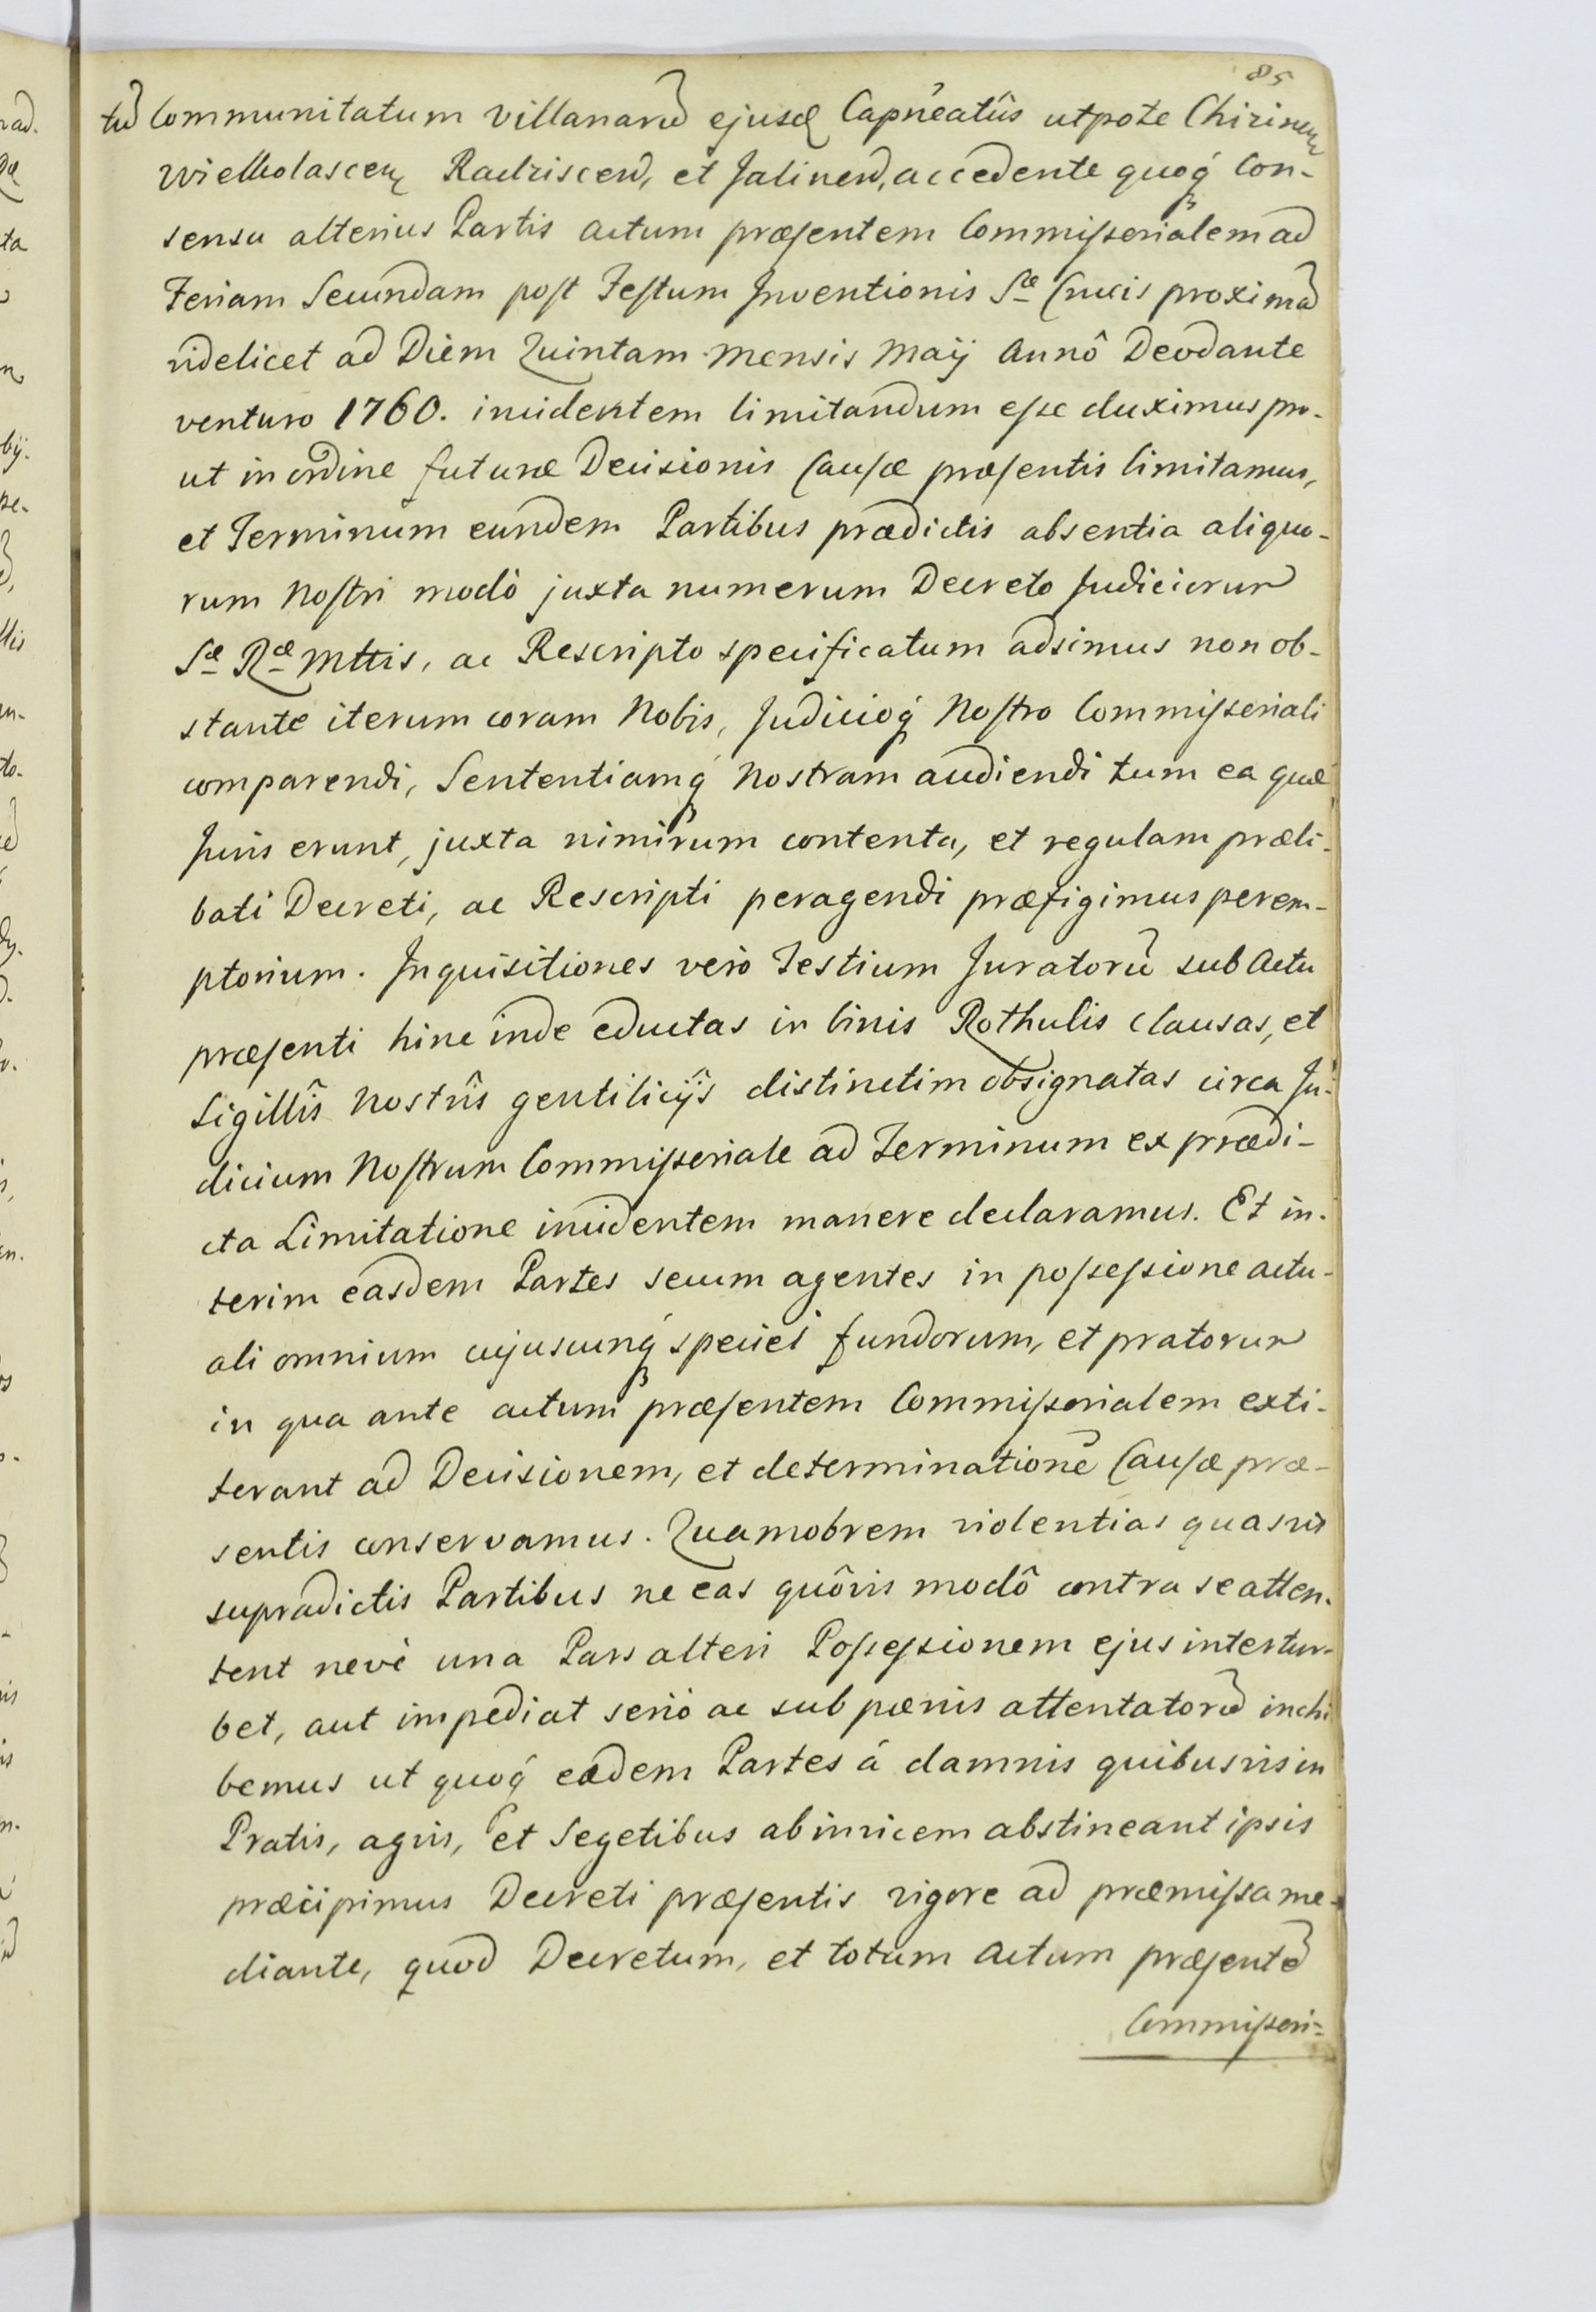 85
tū Communitatum villanarū ejusd Capneatûs utpote Chirinen
Wielkolascen, Radziscen, et Jalinen, accedente quoq́ Con-
sensu alterius Partis actum præsentem Commisserialem ad
Feriam Secundam post Festum Inventionis Sæ Crucis proximā
videlicet ad Diem Quintam mensis Maÿ Annô Deodante
venturo 1760. incidentem limitandum esse duximus pro-
ut in ordine futuræ Decisionis Causæ præsentis limitamus,
et Terminum eundem Partibus prædictis absentia aliquo-
rum Nostri modò juxta numerum Decreto Judiciorum
Sæ Ræ Mttis, ac Rescripto specificatum adsimus non ob-
stante iterum coram Nobis, Judicioq́ Nostro Commisseriali
comparendi, Sententiamq́ Nostram audiendi tum ea quæ
Juris erunt, juxta nimirum contenta, et regulam præli-
bati Decreti, ac Rescripti peragendi præfigimus perem-
ptorium. Inquisitiones verò Testium Juratorū sub Actu
præsenti hinc inde eductas in binis Rothulis clausas, et
Sigillîs Nostrîs gentilicÿs distinctim obsignatas circa Ju-
dicium Nostrum Commisseriale ad Terminum ex prædi-
cta Limitatione incidentem manere declaramus. Et in-
terim easdem Partes secum agentes in possessione actu-
ali omnium cujuscunq́ speciei fundorum, et pratorum
in qua ante actum præsentem Commisserialem exti-
terant ad Decisionem, et determinationē Causæ præ-
sentis conservamus. Quamobrem violentias quasvis
supradictis Partibus ne eas quôvis modô contra se atten-
tent nevè una Pars alteri Possessionem ejus intertur-
bet, aut impediat seriò ac sub pœnis attentatorū inhi
bemus ut quoq́ eædem Partes á damnis quibusvis in
Pratis, agris, et Segetibus abinvicem abstineant ipsis
præcipimus Decreti præsentis vigore ad præmissa me-
diante, quod Decretum, et totum Actum præsentē
Commisseri=